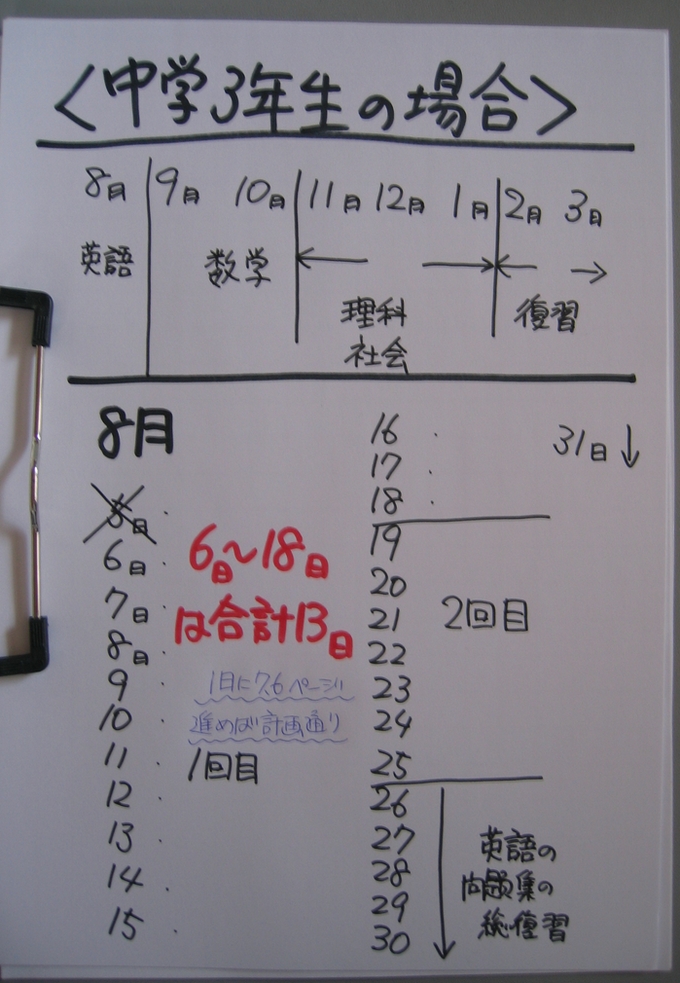 <中学3年生の場合>
8月 9月 10月 11月 12月 1月 2月 3月
英語 数学
理科 復習
社会
8月
5日
6日
7日
8日
9
10
11
12
13
14
15
6日~18日
は合計13日
1日に7.6ページ
進めば計画通り
1回目
16
17
18
19
20
21
22
23
24
25
26
27
28
29
30
31日↓
2回目
英語の
問題集の
総復習